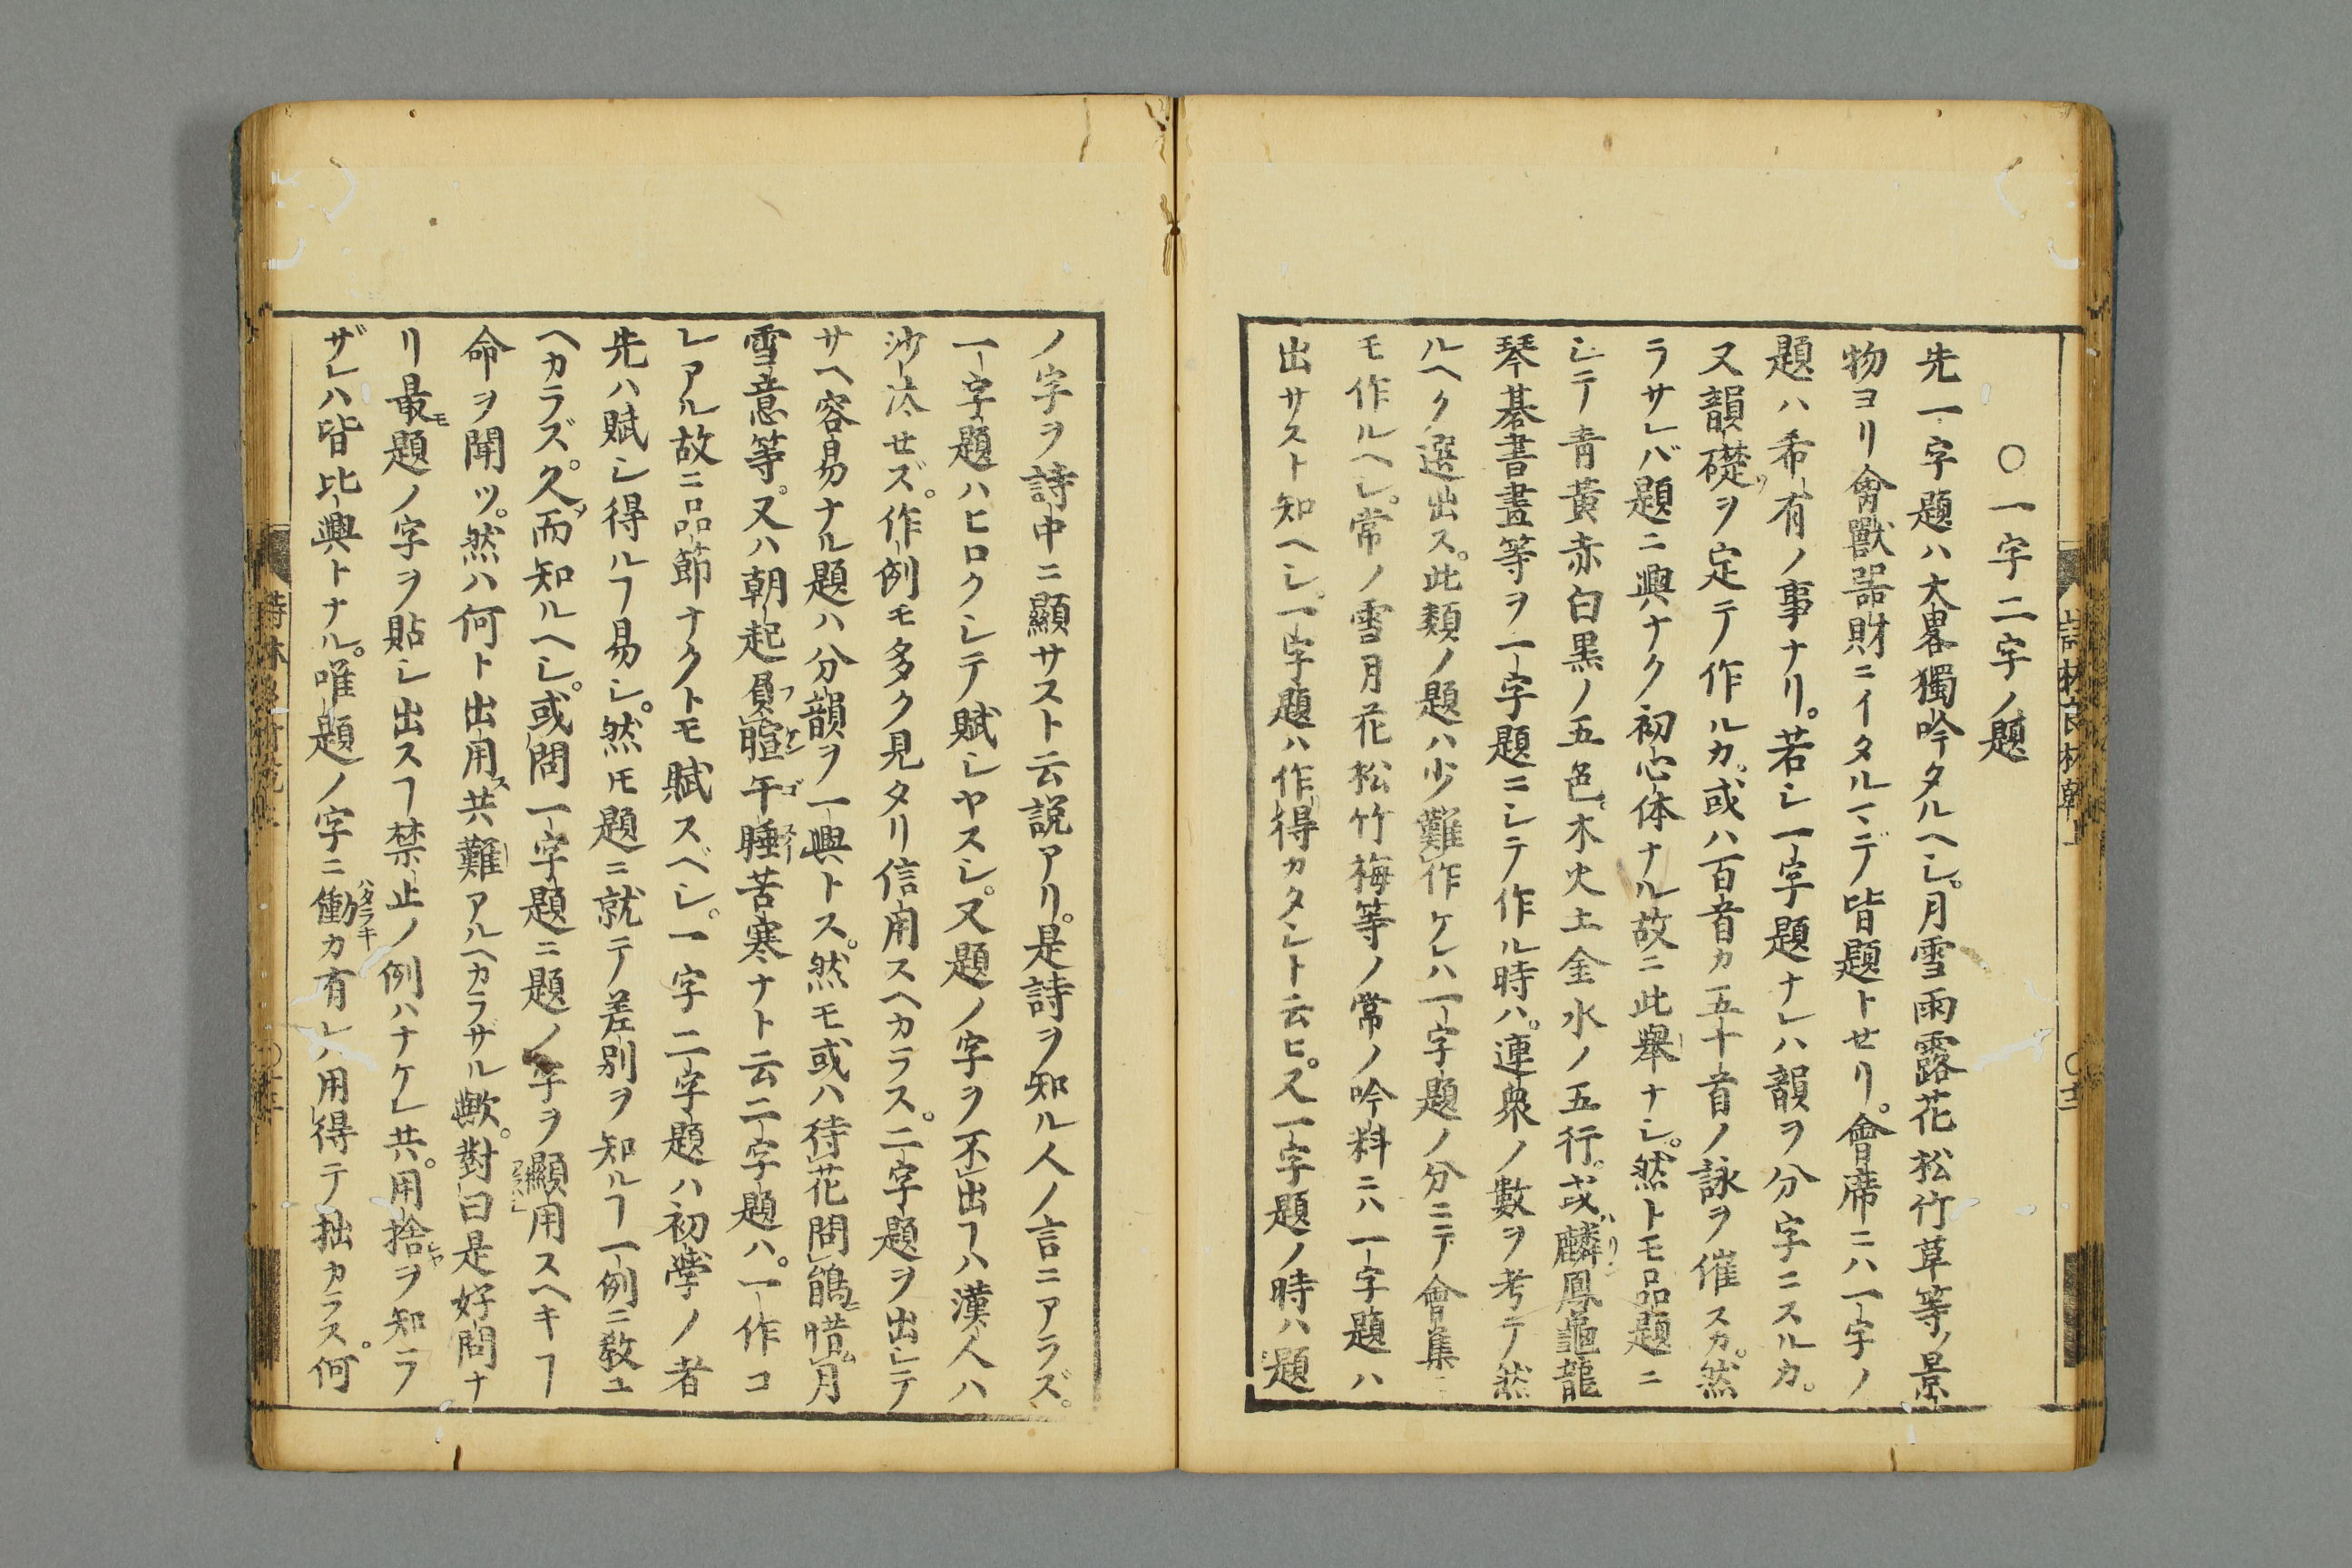 〇一字二字ノ題
先一字題ハ大畧獨吟タルヘシ。月雪雨露花松竹草等ノ景
物ヨリ禽獸器財ニイタルマデ皆題トセリ。會席ニハ一字ノ
題ハ希有ノ事ナリ。若シ一字題ナレハ韻ヲ分字ニスルカ。
又韻礎ヲ定テ作ルカ。或ハ百首カ五十首ノ詠ヲ催スカ。然
ラサレバ題ニ興ナク初心体ナル故ニ此舉ナシ。然トモ品題ニ
シテ青黄赤白黒ノ五色。木火土金水ノ五行。或麟鳳龜龍
琴碁書畫等ヲ一字題ニシテ作ル時ハ。連衆ノ數ヲ考テ然
ルヘク選出ス。此類ノ題ハ少難作ケレハ一字題ノ分ニテ會集ニ
モ作ルヘシ。常ノ雪月花松竹梅等ノ常ノ吟料ニハ一字題ハ
出サスト知ヘシ。一字題ハ作得カタシト云ヒ。又一字題ノ時ハ題
ノ字ヲ詩中ニ顯サスト云説アリ。是詩ヲ知ル人ノ言ニアラズ。
一字題ハヒロクシテ賦シヤスシ。又題ノ字ヲ不出ヿハ漢人ハ
沙汰セズ。作例モ多ク見タリ信用スヘカラス。二字題ヲ出シテ
サヘ容易ナル題ハ分韻ヲ一興トス。然モ或ハ待花問鵑惜月
雪意等。又ハ朝起負暄午睡苦寒ナト云二字題ハ。一作コ
レアル故ニ品節ナクトモ賦スベシ。一字二字題ハ初學ノ者
先ハ賦シ得ルヿ易シ。然モ題ニ就テ差別ヲ知ルヿ一例ニ教ユ
ヘカラズ。久而知ルヘシ。或問一字題ニ題ノ字ヲ顯用スヘキヿ
命ヲ聞ツ。然ハ何ト出用共難アルヘカラザル歟。對曰是好問ナ
リ最題ノ字ヲ貼シ出スヿ禁止ノ例ハナケレ共。用捨ヲ知ラ
ザレハ皆比興トナル。唯題ノ字ニ働カ有レハ用得テ拙カラス。何